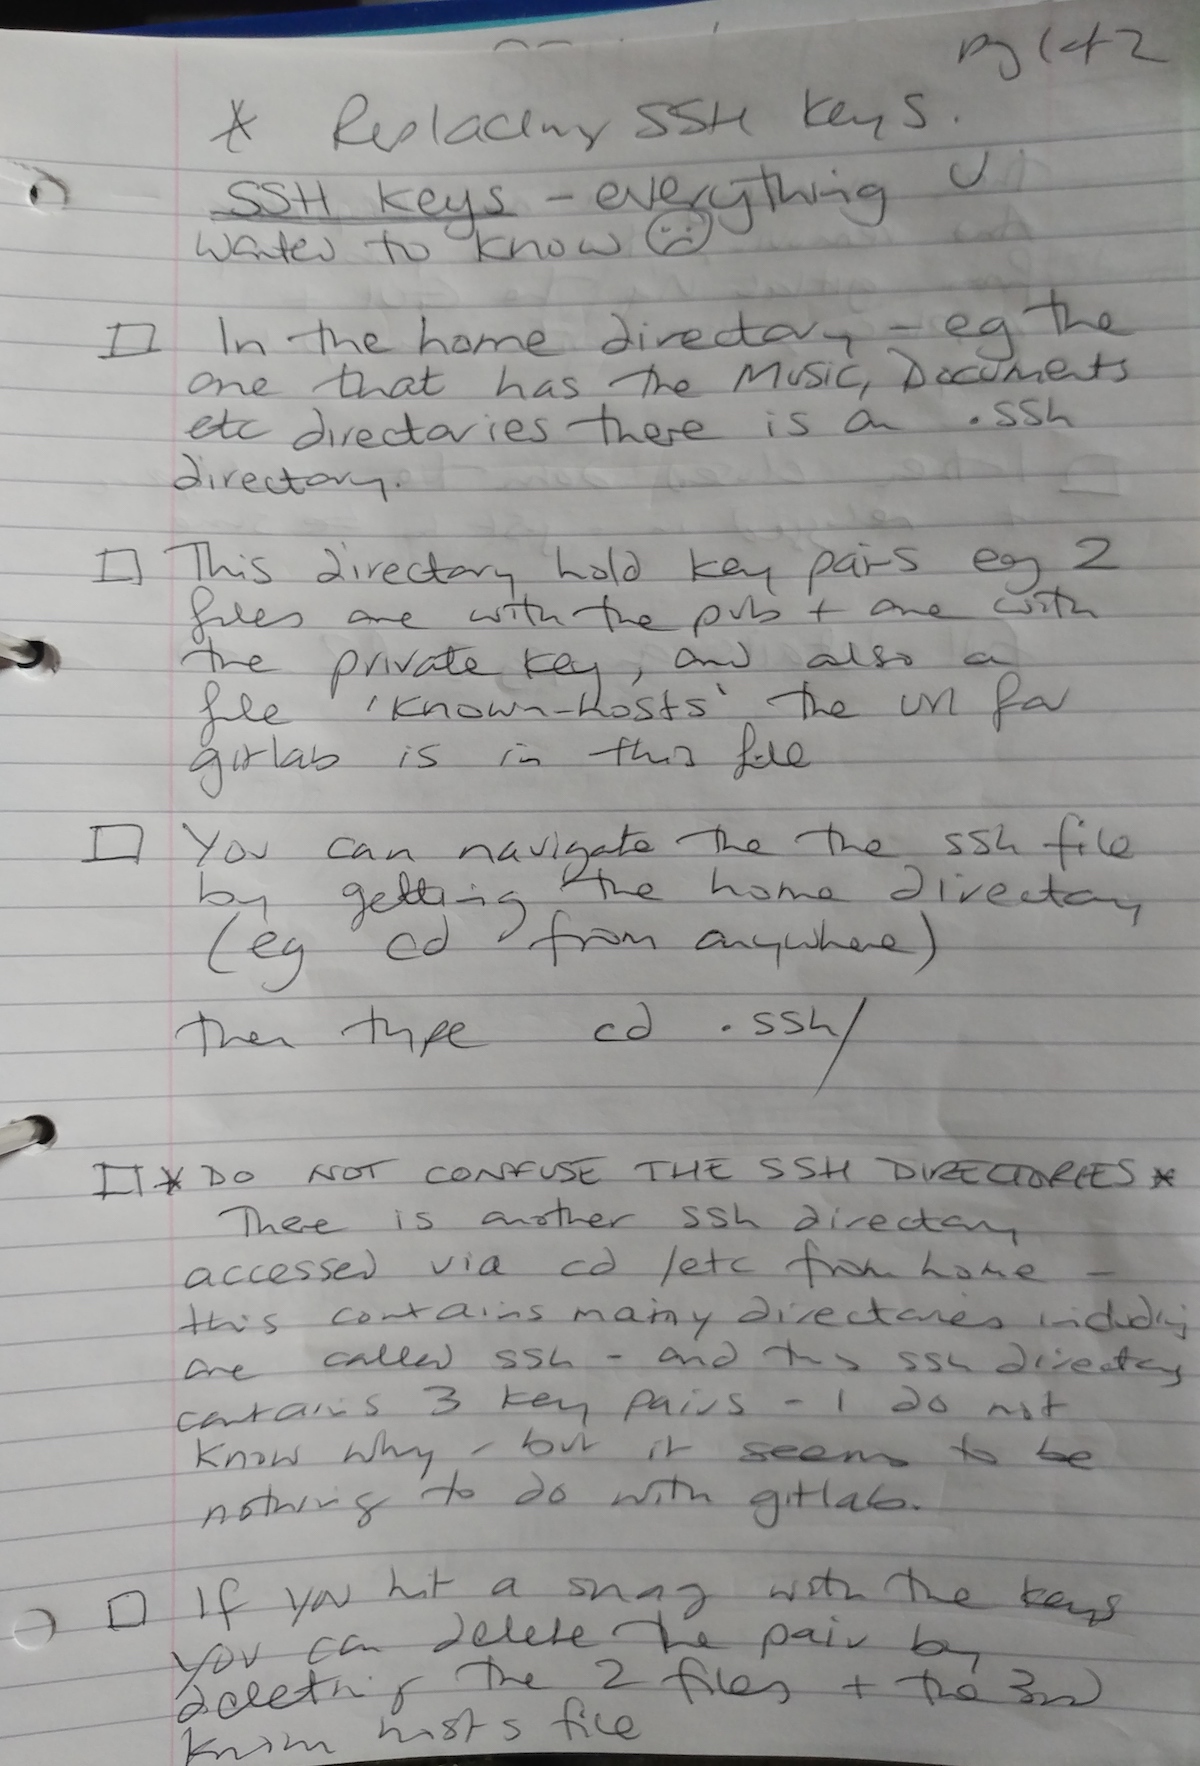 pg 1 of 2
* Replacing SSH Keys.
SSH Keys - everything U
wanted to know ☹
□ In the home directory - eg the
one that has the Music, Documents
etc directories there is an .ssh
directory.
□ This directory hold key pairs eg 2
files one with the pub + one with
the private key, and also a
file 'known-hosts' the url for
gitlab is in this file
□ You can navigate the the ssh file
by getting the home directory
(eg cd from anywhere)
then type cd .ssh/
□ * DO NOT CONFUSE THE SSH DIRECTORIES *
There is another ssh directory
accessed via cd /etc from home -
this contains many directories including
one called ssh - and this ssh directory
contains 3 key pairs - I do not
know why - but it seems to be
nothing to do with gitlab.
□ If you hit a snag with the keys
you can delete the pair by
deleting the 2 files + the 3rd
known hosts file